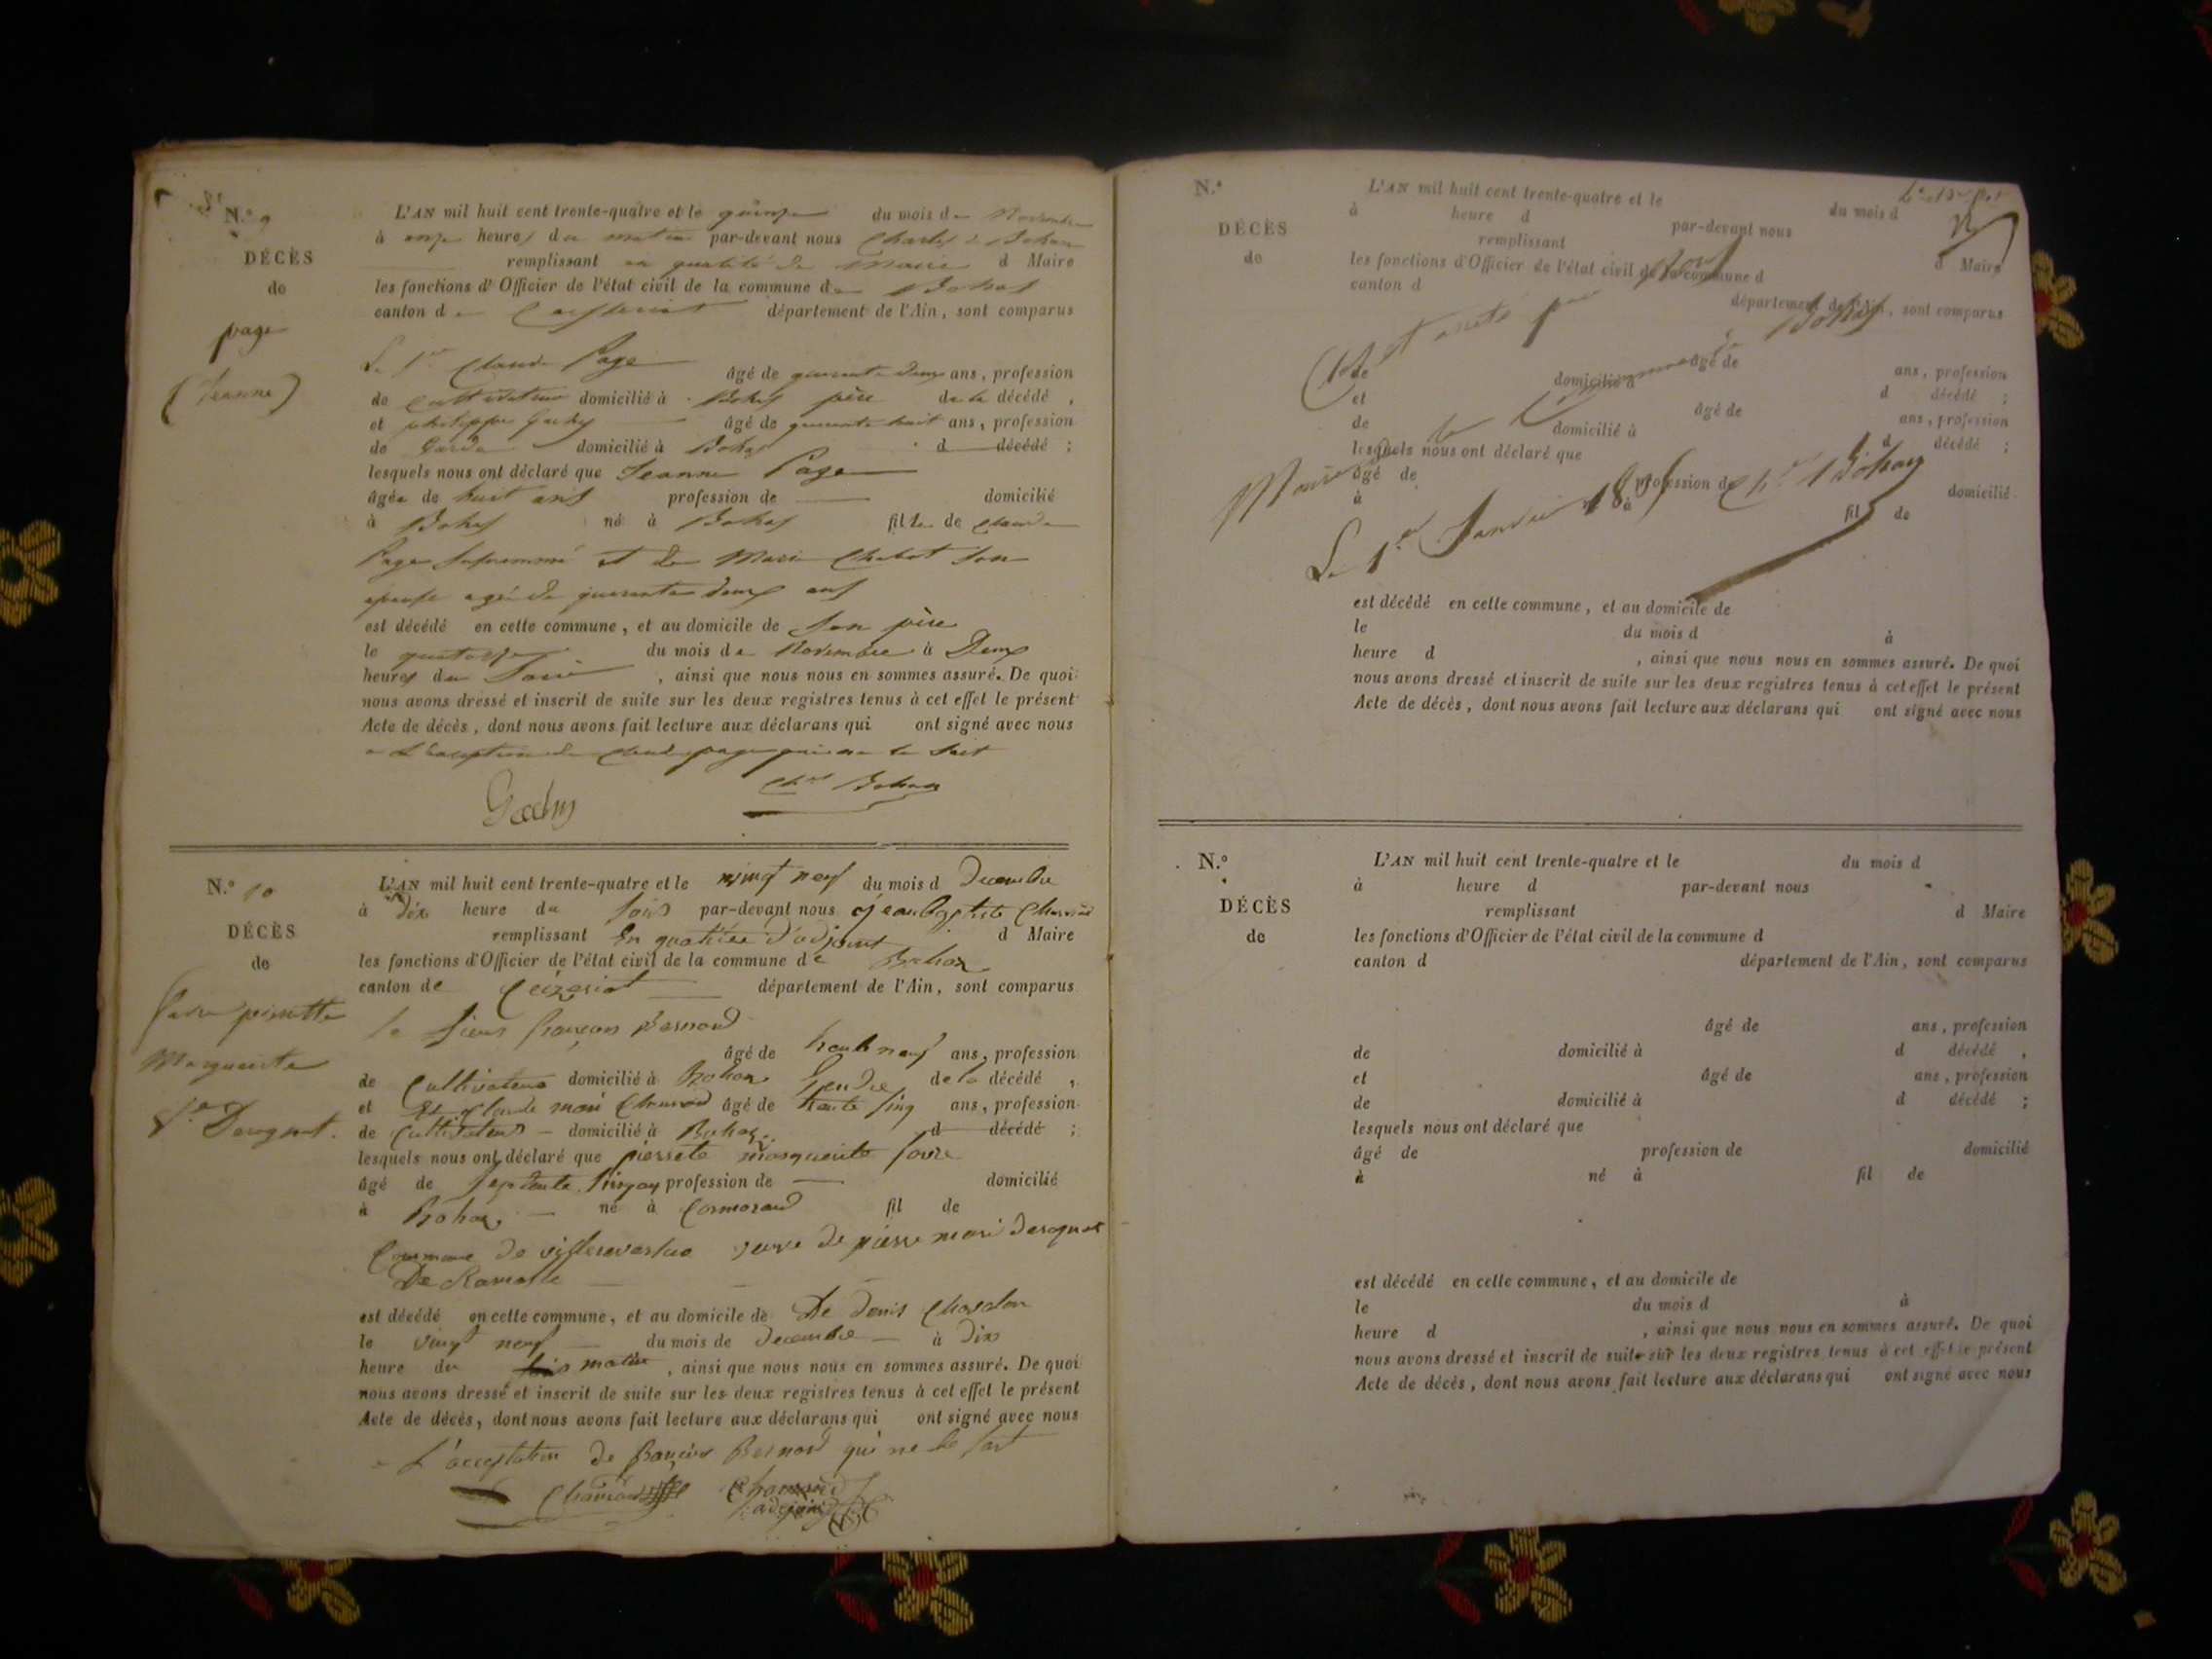 N.º 9
DÉCÈS
de
page
(Jeanne)
L'AN mil huit cent trente-quatre et le quinze du mois de Novembre
à onze heures du matin par-devant nous Charles de Bohan
remplissant en qualité de Maire d Maire
les fonctions d'Officier de l'état civil de la commune de Bohas
canton de département de l'Ain, sont comparus
Le Sr Claude Page
âgé de quarante deux ans, profession
de cultivateur domicilié à Bohas père de la décédé,
et philippe âgé de quarante huit ans, profession
de Garde domicilié à Bohas d décédé;
lesquels nous ont déclaré que Jeanne Page
âgée de huit ans profession de domicilié
à Bohas né à Bohas fille de Claude
Page susnommé et de Marie Chabot son
epouse agée de quarante deux ans
est décédé en cette commune, et au domicile de son père
le quatorze du mois de Novembre à Deux
heures du Soir, ainsi que nous nous en sommes assuré. De quoi
nous avons dressé et inscrit de suite sur les deux registres tenus à cet effet le présent
Acte de décès, dont nous avons fait lecture aux déclarans qui ont signé avec nous
a L'exception de Claude page qui ne le sait
Chs Bohan
N.º 10
DÉCÈS
de
favre pierrette
Marguerite
Ve Derognat.
L'AN mil huit cent trente-quatre et le vingt neuf du mois d Decembre
à dix heure du soir par-devant nous jean baptiste
remplissant En qualité d'adjoint d Maire
les fonctions d'Officier de l'état civil de la commune de Bohas
canton de Ceizeriat département de l'Ain, sont comparus
le sieur françois Bernard
âgé de trente neuf ans, profession
de Cultivateur domicilié à Bohas Gendre de la décédé,
et Claude mari âgé de trente sinq ans, profession
de Cultivateur domicilié à Bohas d décédé;
lesquels nous ont déclaré que pierrete marguerite favre
âgé de septente sinq profession de domicilié
à Bohas né à Cormorand fil de
Commune de villereversure veuve de pierre mari derognat
De Ramasse
est décédé en cette commune, et au domicile de De Denis Chardon
le vingt neuf du mois de decembre à dix
heure du matin, ainsi que nous nous en sommes assuré. De quoi
nous avons dressé et inscrit de suite sur les deux registres tenus à cet effet le présent
Acte de décès, dont nous avons fait lecture aux déclarans qui ont signé avec nous
a L'acceptation de françois Bernard qui ne le
adjoint
N.º
DÉCÈS
de
L'AN mil huit cent trente-quatre et le du mois d
à heure d par-devant nous
remplissant d Maire
les fonctions d'Officier de l'état civil de la commune d
canton d département de l'Ain, sont comparus
Clos et arrêté par nous
Maire de la Commune de Bohas
Le 1er Janvier 1835 Chs Bohan
âgé de ans, profession
de domicilié à d décédé;
et âgé de ans, profession
de domicilié à d décédé;
lesquels nous ont déclaré que
âgé de profession de domicilié
à né à fil de
est décédé en cette commune, et au domicile de
le du mois d à
heure d, ainsi que nous nous en sommes assuré. De quoi
nous avons dressé et inscrit de suite sur les deux registres tenus à cet effet le présent
Acte de décès, dont nous avons fait lecture aux déclarans qui ont signé avec nous
N.º
DÉCÈS
de
L'AN mil huit cent trente-quatre et le du mois d
à heure d par-devant nous
remplissant d Maire
les fonctions d'Officier de l'état civil de la commune d
canton d département de l'Ain, sont comparus
âgé de ans, profession
de domicilié à d décédé,
et âgé de ans, profession
de domicilié à d décédé;
lesquels nous ont déclaré que
âgé de profession de domicilié
à né à fil de
est décédé en cette commune, et au domicile de
le du mois d à
heure d, ainsi que nous nous en sommes assuré. De quoi
nous avons dressé et inscrit de suite sur les deux registres tenus à cet effet le présent
Acte de décès, dont nous avons fait lecture aux déclarans qui ont signé avec nous